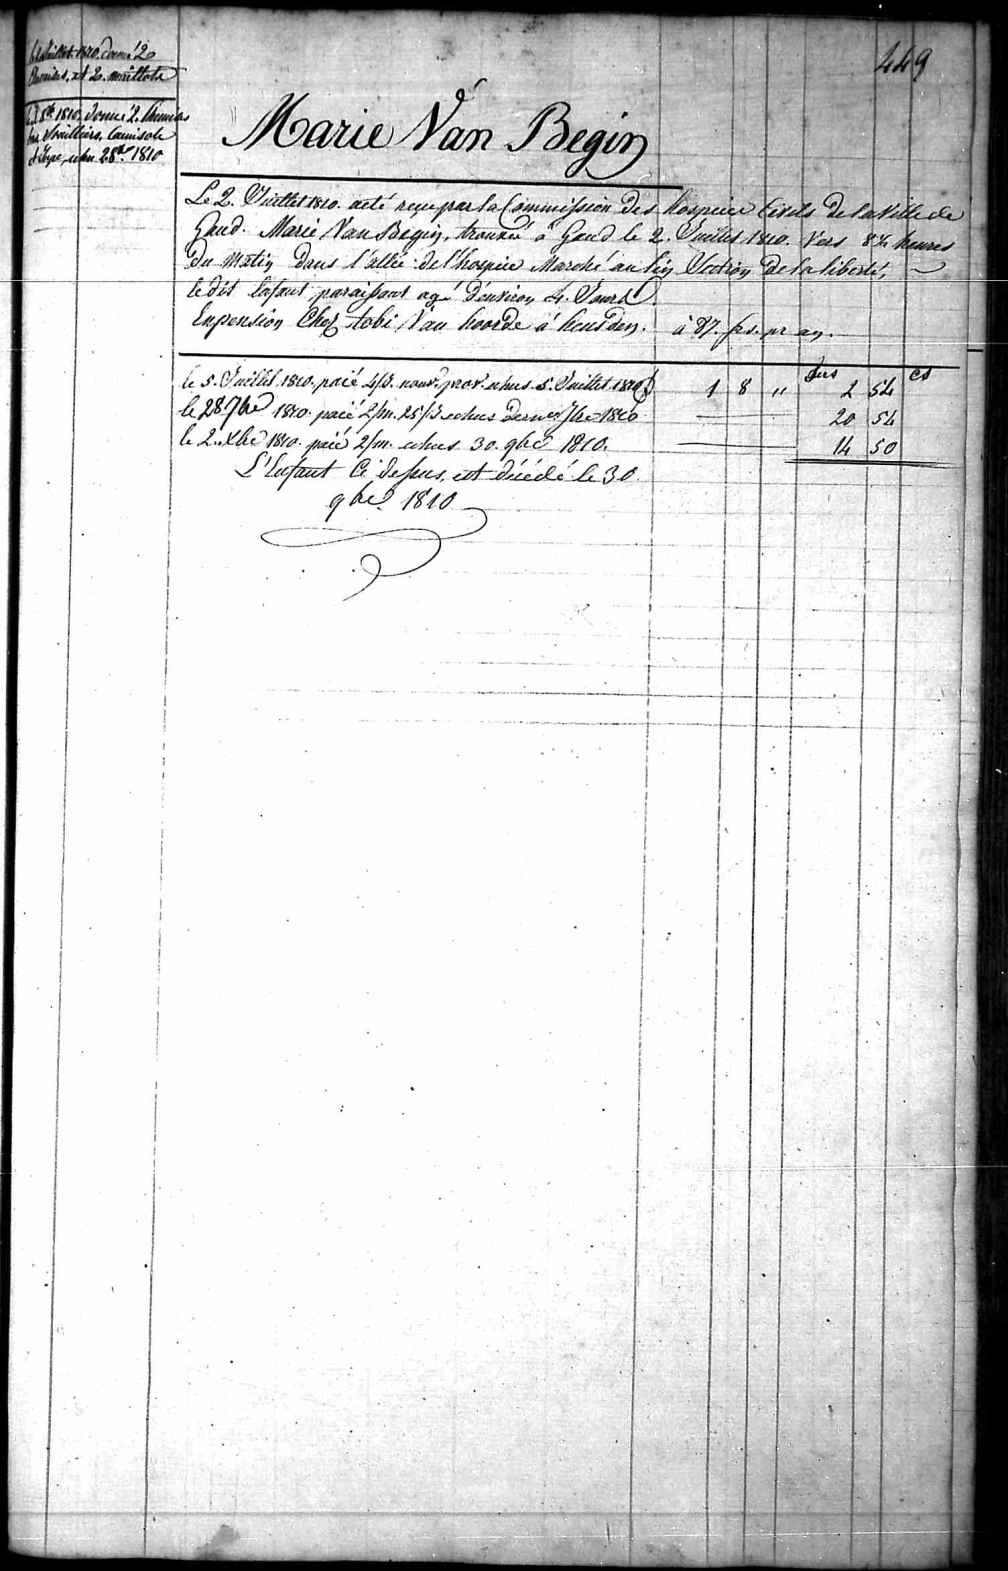 449
le Juillet 1810. donné 2
et 2. maillots
8bre 1810. donné 2. 
Camisole
1810
Marie Van Begin
Le 2. Juillet 1810. a été reçue par la Commission des hospices Civils de la Ville de
Gand. Marie Van Begin, trouvée à Gand le 2. Juillet 1810. Vers 8 ½ heures
du Matin dans l'allée de l'hospice Marché au lin Section de la liberté,
le dit Enfant paraissant agé d'environ 4. Jours
En pension Chez tobi Van hoorde à heusden. à 87. frs. pr an.
frs cs
le 5. Juillet 1810. paié 4/3. nouv. prov. echus 5. Juillet 1810 1 8 " 2 54
le 28 7bre 1810. paié 2/m. 25/3 echus dernier 7bre 1810 20 54
le 2. Xbre 1810. paié 2/m. echus 30. 9bre 1810. 14 50
L'Enfant Ci dessus, est décédé le 30
9bre 1810